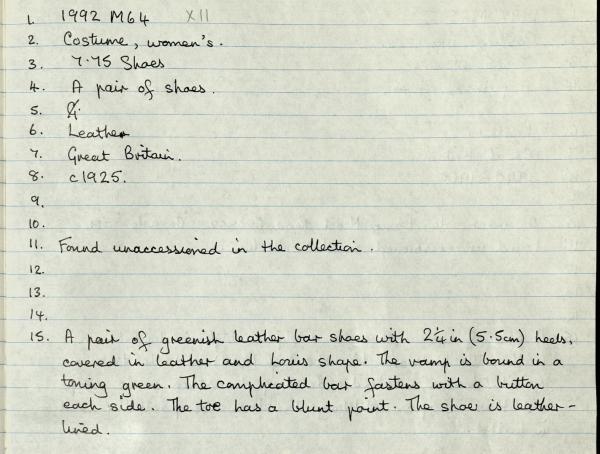 1. 1992 M64 XII
2. Costume, women's.
3. 7.75 Shoes
4. A pair of shoes.
5.
6. Leather
7. Great Britain.
8. c1925.
9.
10.
11. Found unaccessioned in the collection.
12.
13.
14.
15. A pair of greenish leather bar shoes with 2¼in (5.5cm) heels,
covered in leather and Louis shape. The vamp is bound in a
toning green. The complicated bar fastens with a button
each side. The toe has a blunt point. The shoe is leather-
lined.